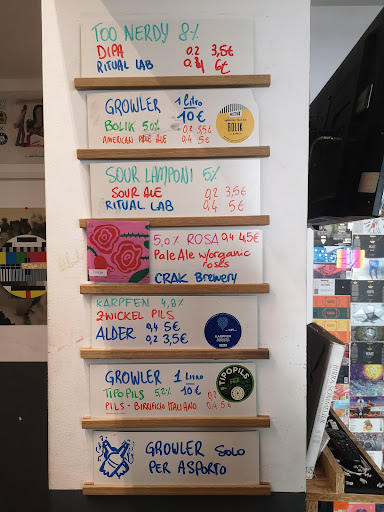 TOO NERDY 8%
DIPA 0.2 3,5€
RITUAL LAB 0.4 6€
GROWLER 1 litro
10€
BOLIK 5,0% 0,2 3,5€
AMERICAN PALE ALE 0,4 5€
BOLIK
SOUR LAMPONI 5%
SOUR ALE 0,2 3,5€
RITUAL LAB 0,4 5€
5,0% ROSA 0,4 4,5€
Pale Ale w/organic
roses
CRAK Brewery
KARPFEN 4,8%
ZWICKEL PILS
ALDER 0,4 5€
0,2 3,5€
KARPFEN
GROWLER 1 LITRO
TIPOPILS 5,2% 10€
PILS - BIRRIFICIO ITALIANO 0,4 5€
TIPOPILS
GROWLER SOLO
PER ASPORTO